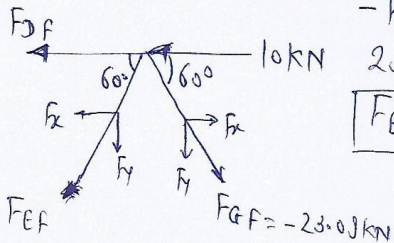 F_DF
60°
60°
10KN
Fx
Fy
Fy
Fx
F_EF
F_GF = -23.09KN